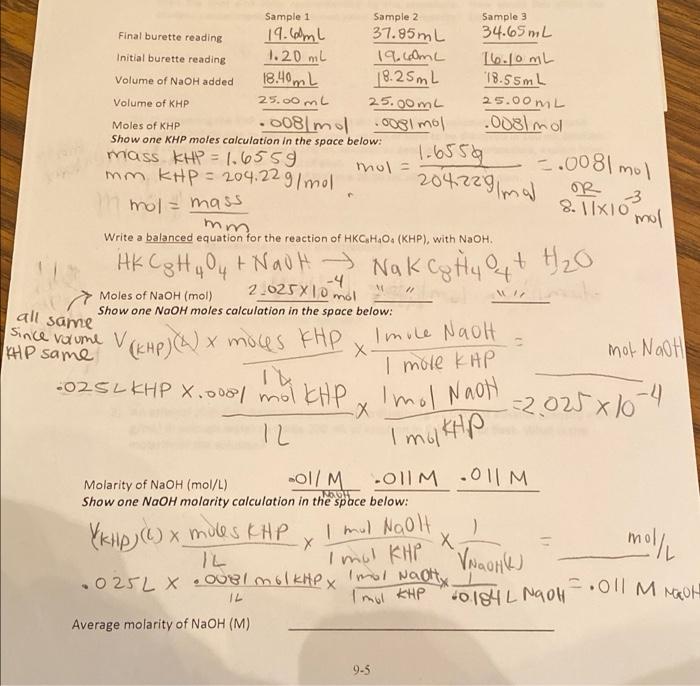 Sample 1 Sample 2 Sample 3
Final burette reading 19.60mL 37.85mL 34.65mL
Initial burette reading 1.20 mL 19.60mL 16.10 mL
Volume of NaOH added 18.40mL 18.25mL 18.55mL
Volume of KHP 25.00mL 25.00mL 25.00mL
Moles of KHP .0081mol .0081mol .0081mol
Show one KHP moles calculation in the space below:
mass KHP = 1.655g mol = 1.655g / 204.22g/mol = .0081 mol
mm KHP = 204.22g/mol OR
mol = mass / mm 8.11x10⁻³ mol
Write a balanced equation for the reaction of HKC₈H₄O₄ (KHP), with NaOH.
HKC₈H₄O₄ + NaOH → NaKC₈H₄O₄ + H₂O
Moles of NaOH (mol) 2.025x10⁻⁴ mol " " " "
Show one NaOH moles calculation in the space below:
all same since volume KHP same
V(KHP)(L) x moles KHP / 1L x 1 mole NaOH / 1 mole KHP = mol NaOH
.025L KHP x .0081 mol KHP / 1L x 1 mol NaOH / 1 mol KHP = 2.025 x 10⁻⁴
Molarity of NaOH (mol/L) .011 M .011 M .011 M
NaOH
Show one NaOH molarity calculation in the space below:
V(KHP)(L) x moles KHP / 1L x 1 mol NaOH / 1 mol KHP x 1 / VNaOH(L) = mol/L
.025L x .0081 mol KHP / 1L x 1mol NaOH / 1mol KHP x 1 / .0184 L NaOH = .011 M NaOH
Average molarity of NaOH (M)
9-5